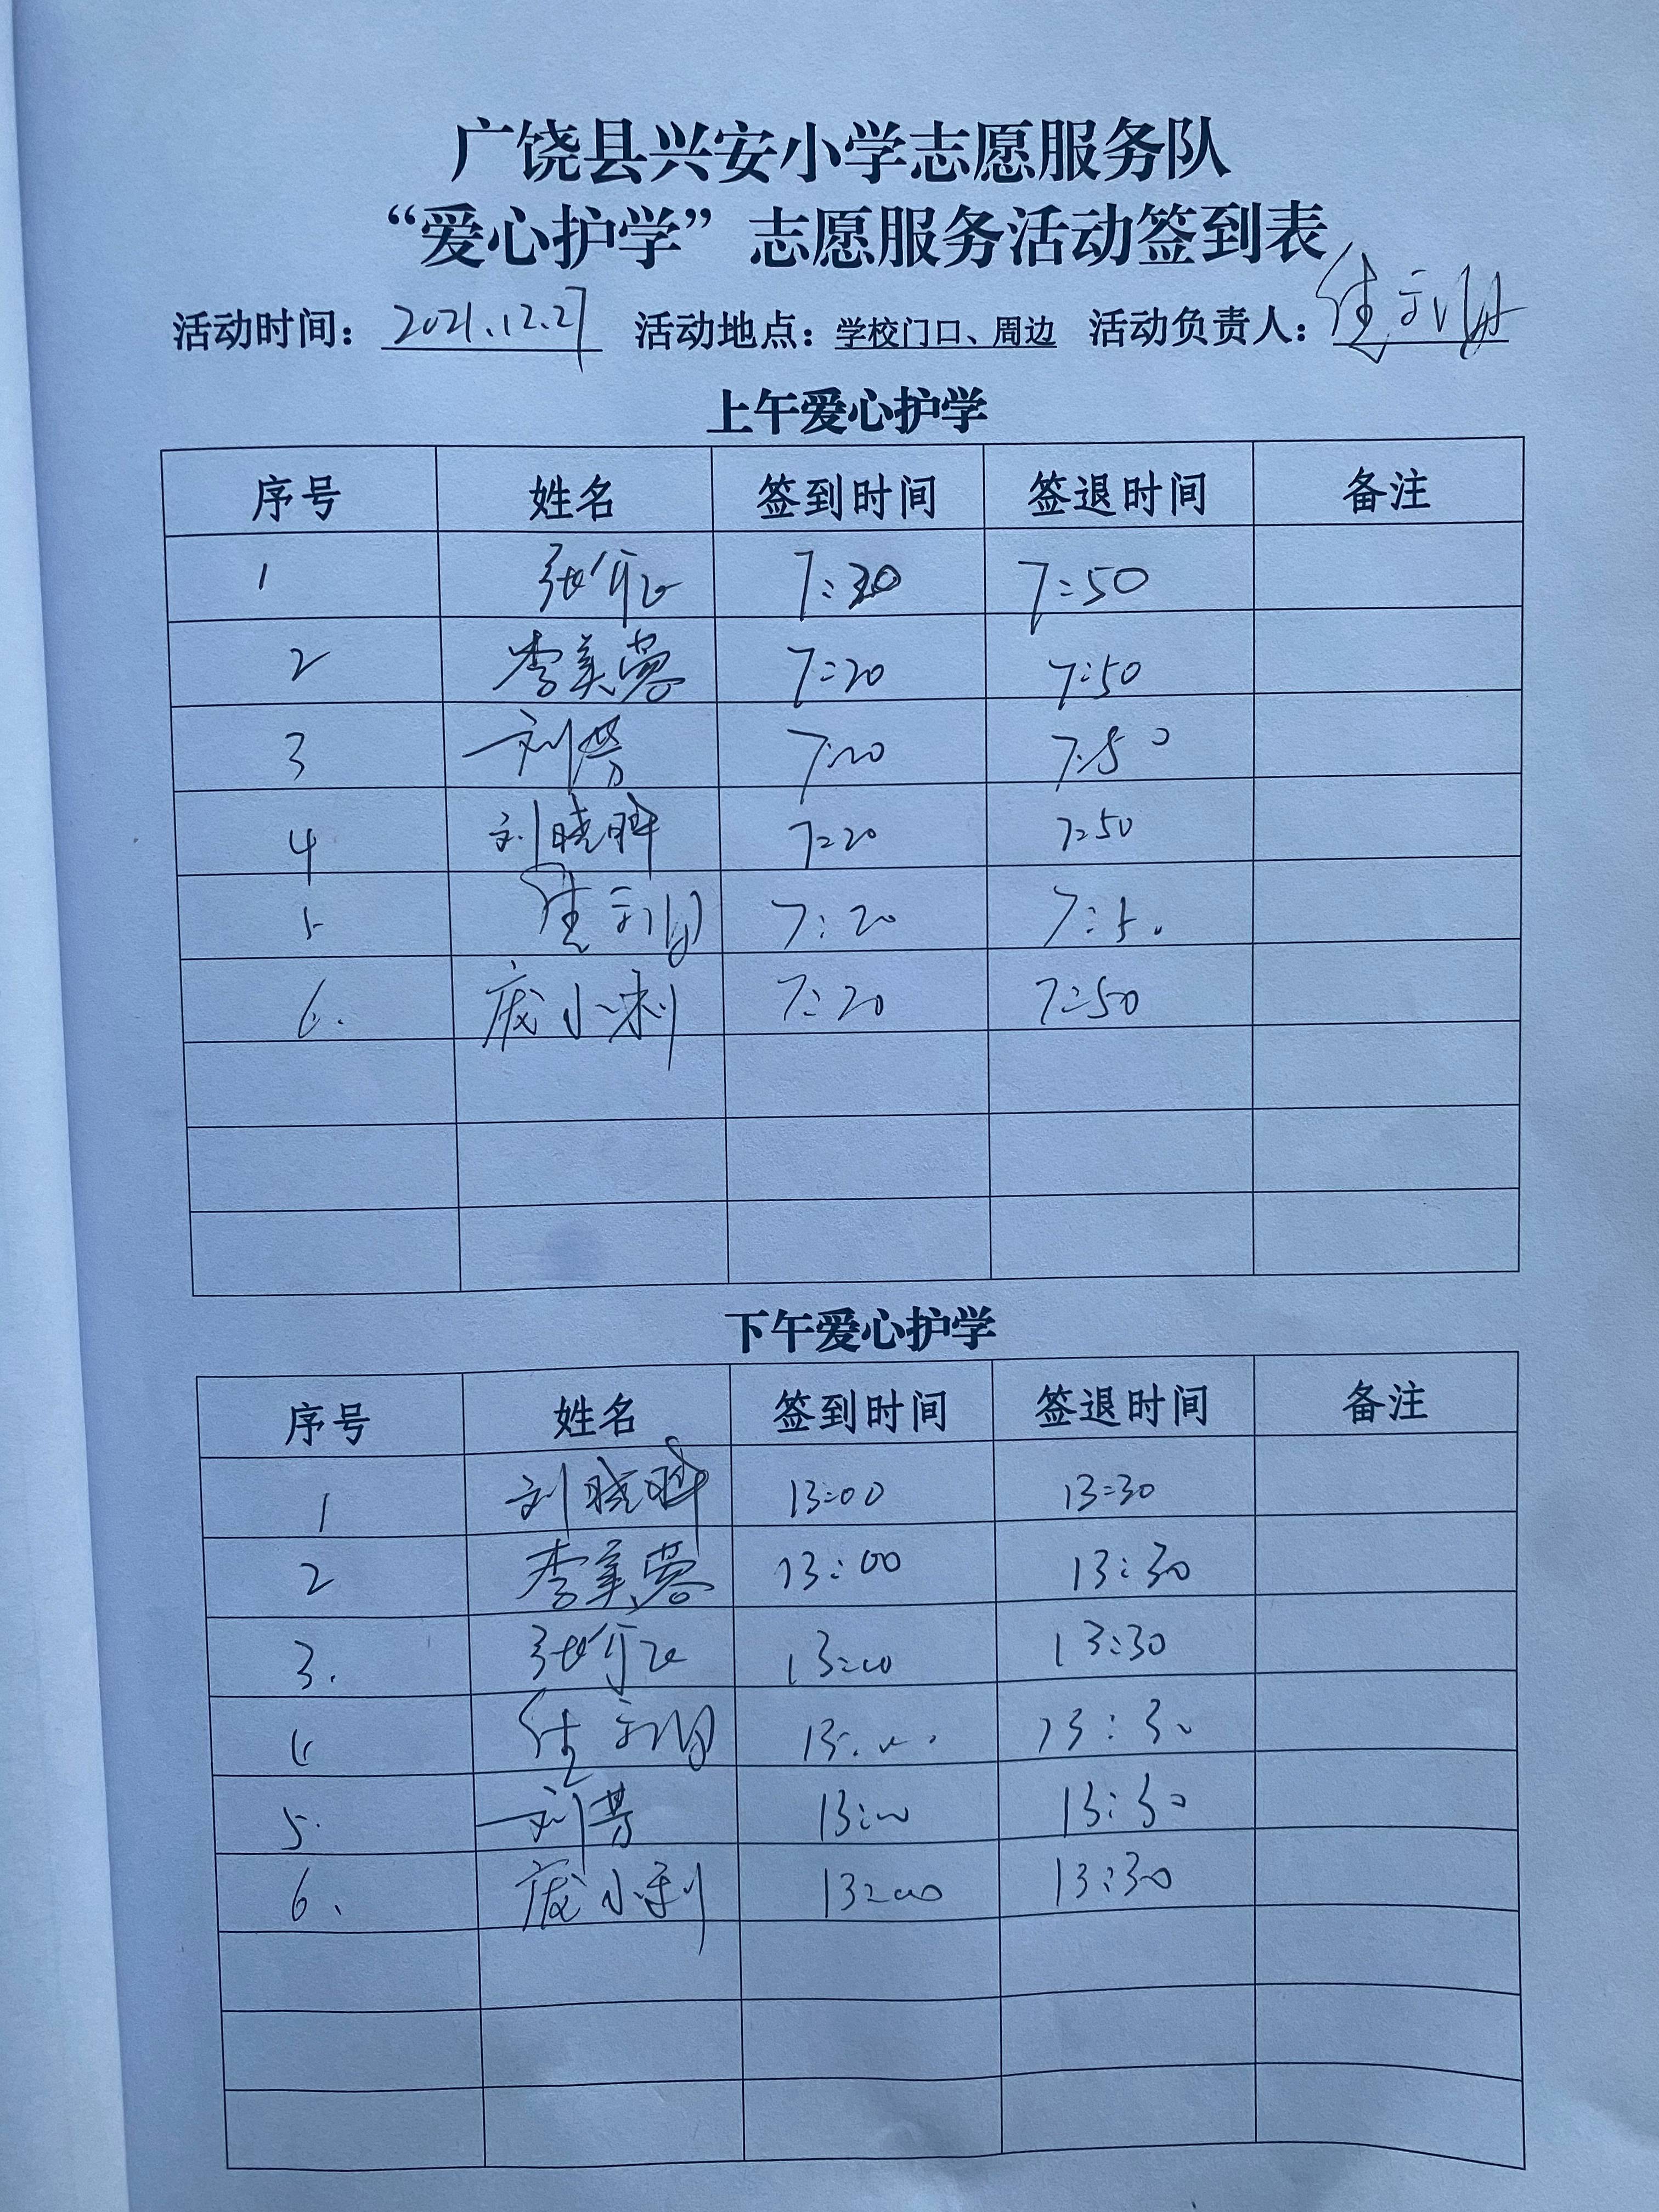 广饶县兴安小学志愿服务队
“爱心护学”志愿服务活动签到表
活动时间：2021.12.27 活动地点：学校门口、周边 活动负责人：
上午爱心护学
序号 姓名 签到时间 签退时间 备注
1 7:20 7:50
2 李美蓉 7:20 7:50
3 刘芳 7:20 7:50
4 刘晓晔 7:20 7:50
5 7:20 7:50
6. 庞小利 7:20 7:50
下午爱心护学
序号 姓名 签到时间 签退时间 备注
1 刘晓晔 13:00 13:30
2 李美蓉 13:00 13:30
3. 13:00 13:30
4 13:00 13:30
5. 刘芳 13:00 13:30
6. 庞小利 13:00 13:30